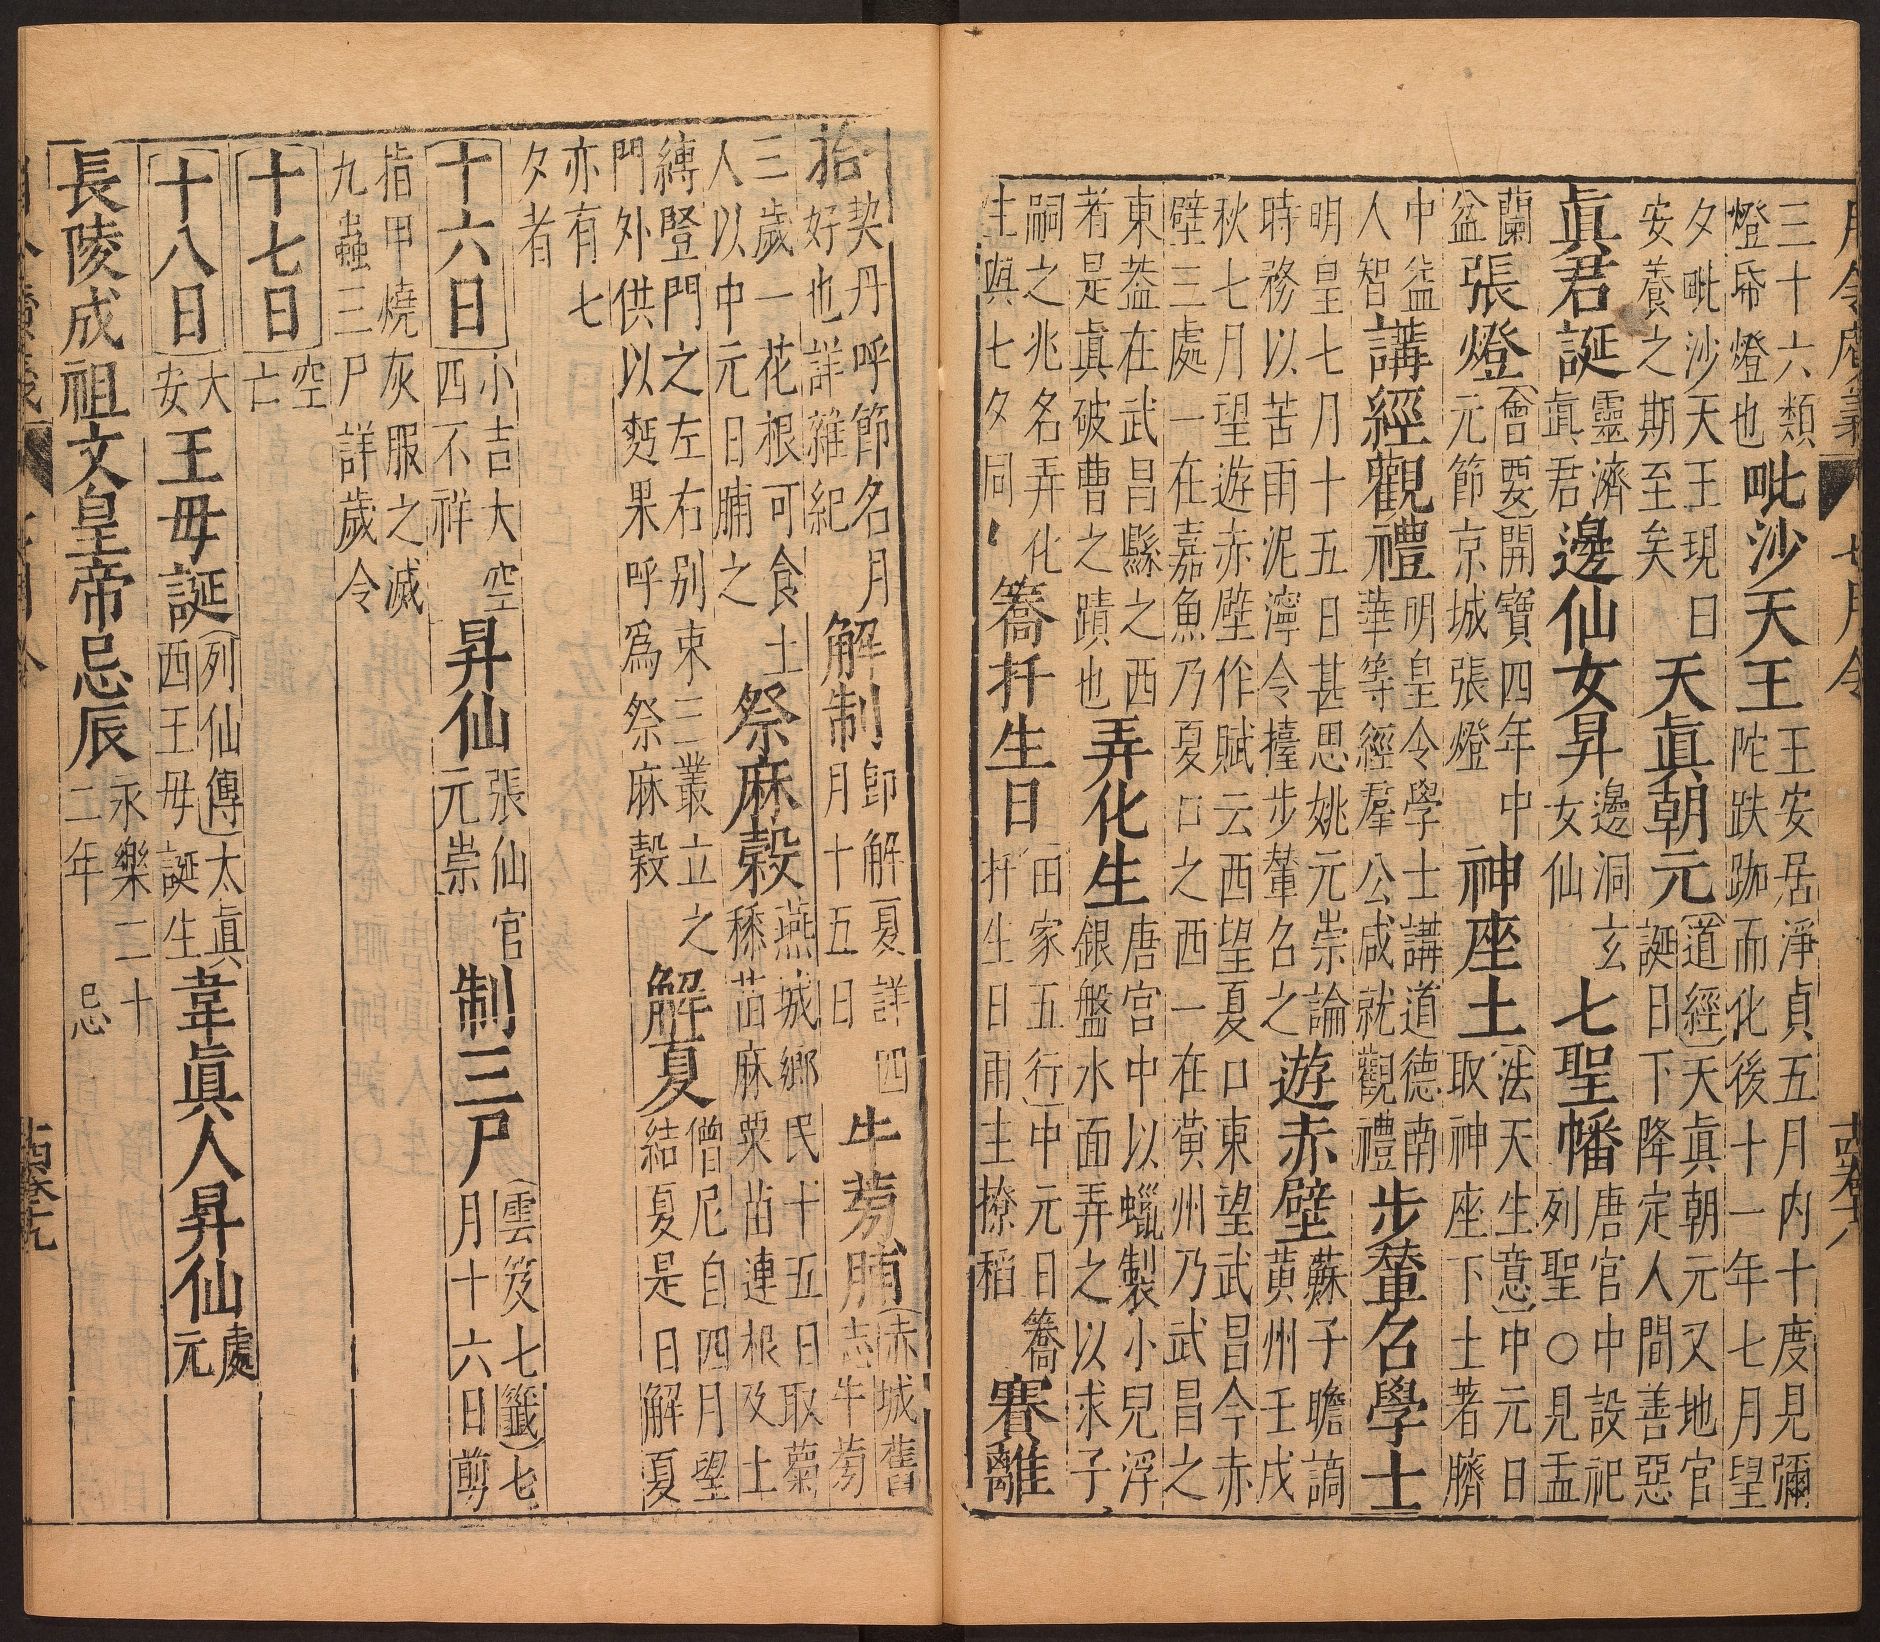 月令廣義 七月令
三十六類
燈帋燈也
毗沙天王
王安居淨貞五月内十度見彌
陀趺跏而化後十一年七月望
夕毗沙天王現日
安養之期至矣
天眞朝元
(道經)天眞朝元又地官
誕日下降定人間善惡
眞君誕
靈濟
眞君
邊仙女昇
邊洞玄
女仙
七聖幡
唐官中設祀
列聖○見盂
蘭
盆
張燈
(會要)開寶四年中
元節京城張燈
神座土
(法天生意)中元日
取神座下土著臍
中益
人智
講經觀禮
明皇令學士講道德南
華等經羣公咸就觀禮
步輦名學士
明皇七月十五日甚思姚元崇論
時務以苦雨泥濘令擡步輦名之
遊赤壁
蘇子瞻謫
黄州壬戌
秋七月望遊赤壁作賦云西望夏口東望武昌今赤
壁三處一在嘉魚乃夏口之西一在黄州乃武昌之
東葢在武昌縣之西
着是眞破曹之蹟也
弄化生
唐宮中以蠟製小兒浮
銀盤水面弄之以求子
嗣之兆名弄化
生與七夕同
蕎扦生日
(田家五行)中元日蕎
扦生日雨主撩稻
賽離
抬
契丹呼節名月
好也詳雜紀
解制
卽解夏詳四
月十五日
牛蒡脯
(赤城舊
志牛蒡
三歲一花根可食土
人以中元日脯之
祭麻榖
燕城鄉民十五日取蘜
稌苗麻粟苗連根及土
縛豎門之左右别束三叢立之
門外供以麪果呼爲祭麻榖
解夏
僧尼自四月望
結夏是日解夏
亦有七
夕者
十六日
小吉大空
四不祥
昇仙
張仙官
元崇
制三尸
(雲笈七籤)七
月十六日剪
指甲燒灰服之滅
九蟲三尸詳歲令
十七日
空
亡
十八日
大
安
王母誕
(列仙傳)太眞
西王母誕生
韋眞人昇仙
處
元
長陵成祖文皇帝忌辰
永樂二十
二年 忌